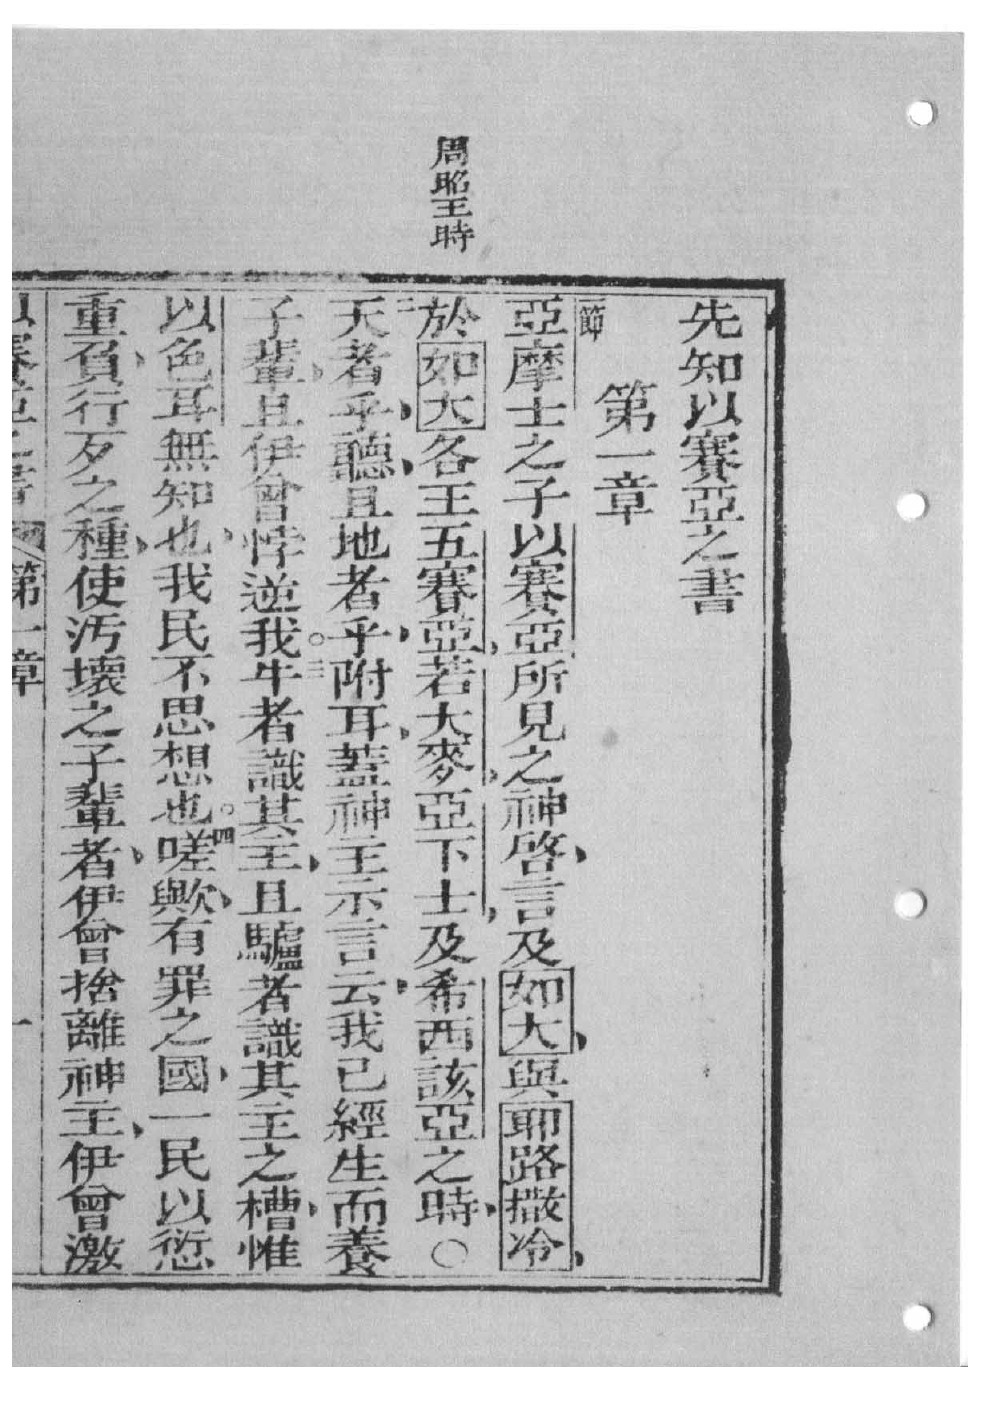 周昭王時
先知以賽亞之書
第一章
一節
亞摩士之子以賽亞所見之神啓言及如大與耶路撒冷
於如大各王五賽亞、若大麥、亞下士、及希西該亞之時、〇
二天者乎、聽、且地者乎、附耳、蓋神王示言云、我已經生而養
子輩、且伊曾悖逆我。三牛者識其主、且驢者識其主之槽、惟
以色耳無知也、我民不思想也。四嗟歟、有罪之國、一民以愆
重負、行歹之種、使汚壞之子輩者、伊曾捨離神主、伊曾激
以賽亞之書 第一章 一